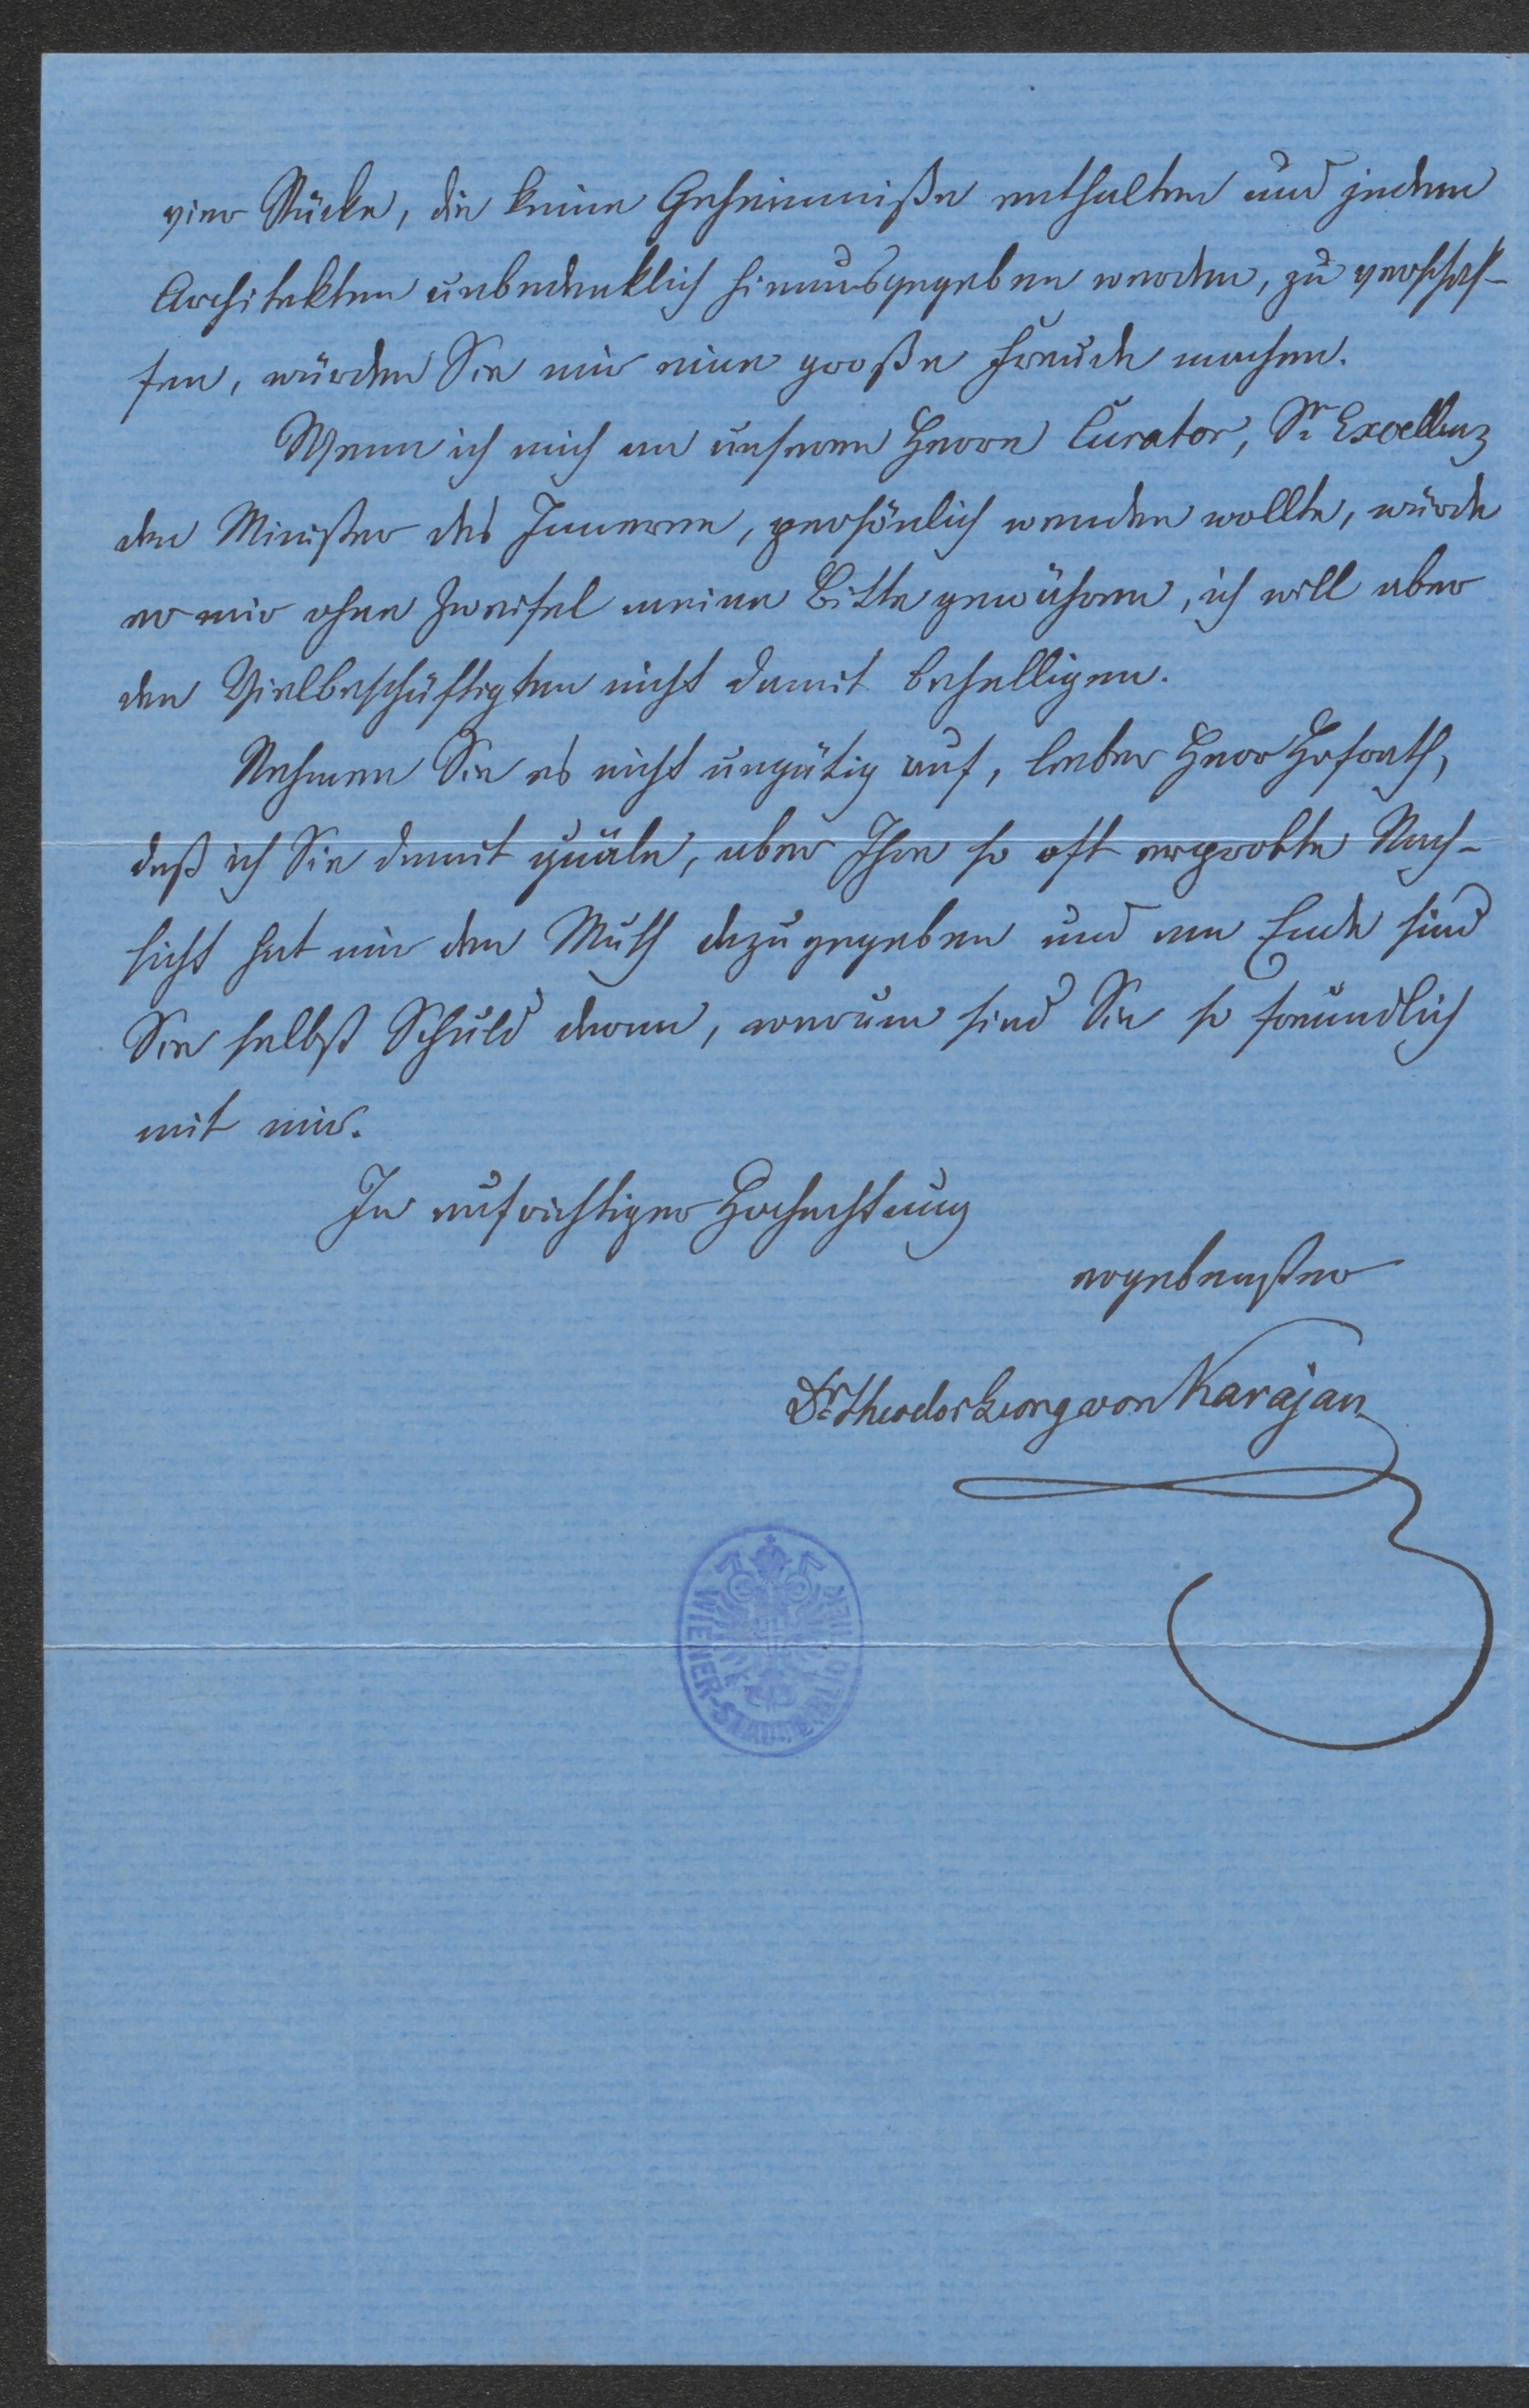 vier Stücke, die keine Geheimniße enthalten und jedem
Architekten unbedenklich hinausgegeben werden, zu verschaf-
fen, würden Sie mir eine große Freude machen.
Wenn ich mich an unseren Herrn Curator, Sr. Excellenz
den Minister des Inneren, persönlich wenden wollte, würde
er mir ohne Zweifel meine Bitte gewähren, ich will aber
den Vielbeschäftigten nicht damit behelligen.
Nehmen Sie es nicht ungütig auf, lieber Herr Hofrath,
daß ich Sie damit quäle, aber Ihre so oft erprobte Nach-
sicht hat mir den Muth dazu gegeben und am Ende sind
Sie selbst Schuld daran, warum sind Sie so freundlich
mit mir.
In aufrichtiger Hochachtung
ergebenster
Dr. Theodor Georg von Karajan
WIENER-STADT-BIBLIOTHEK